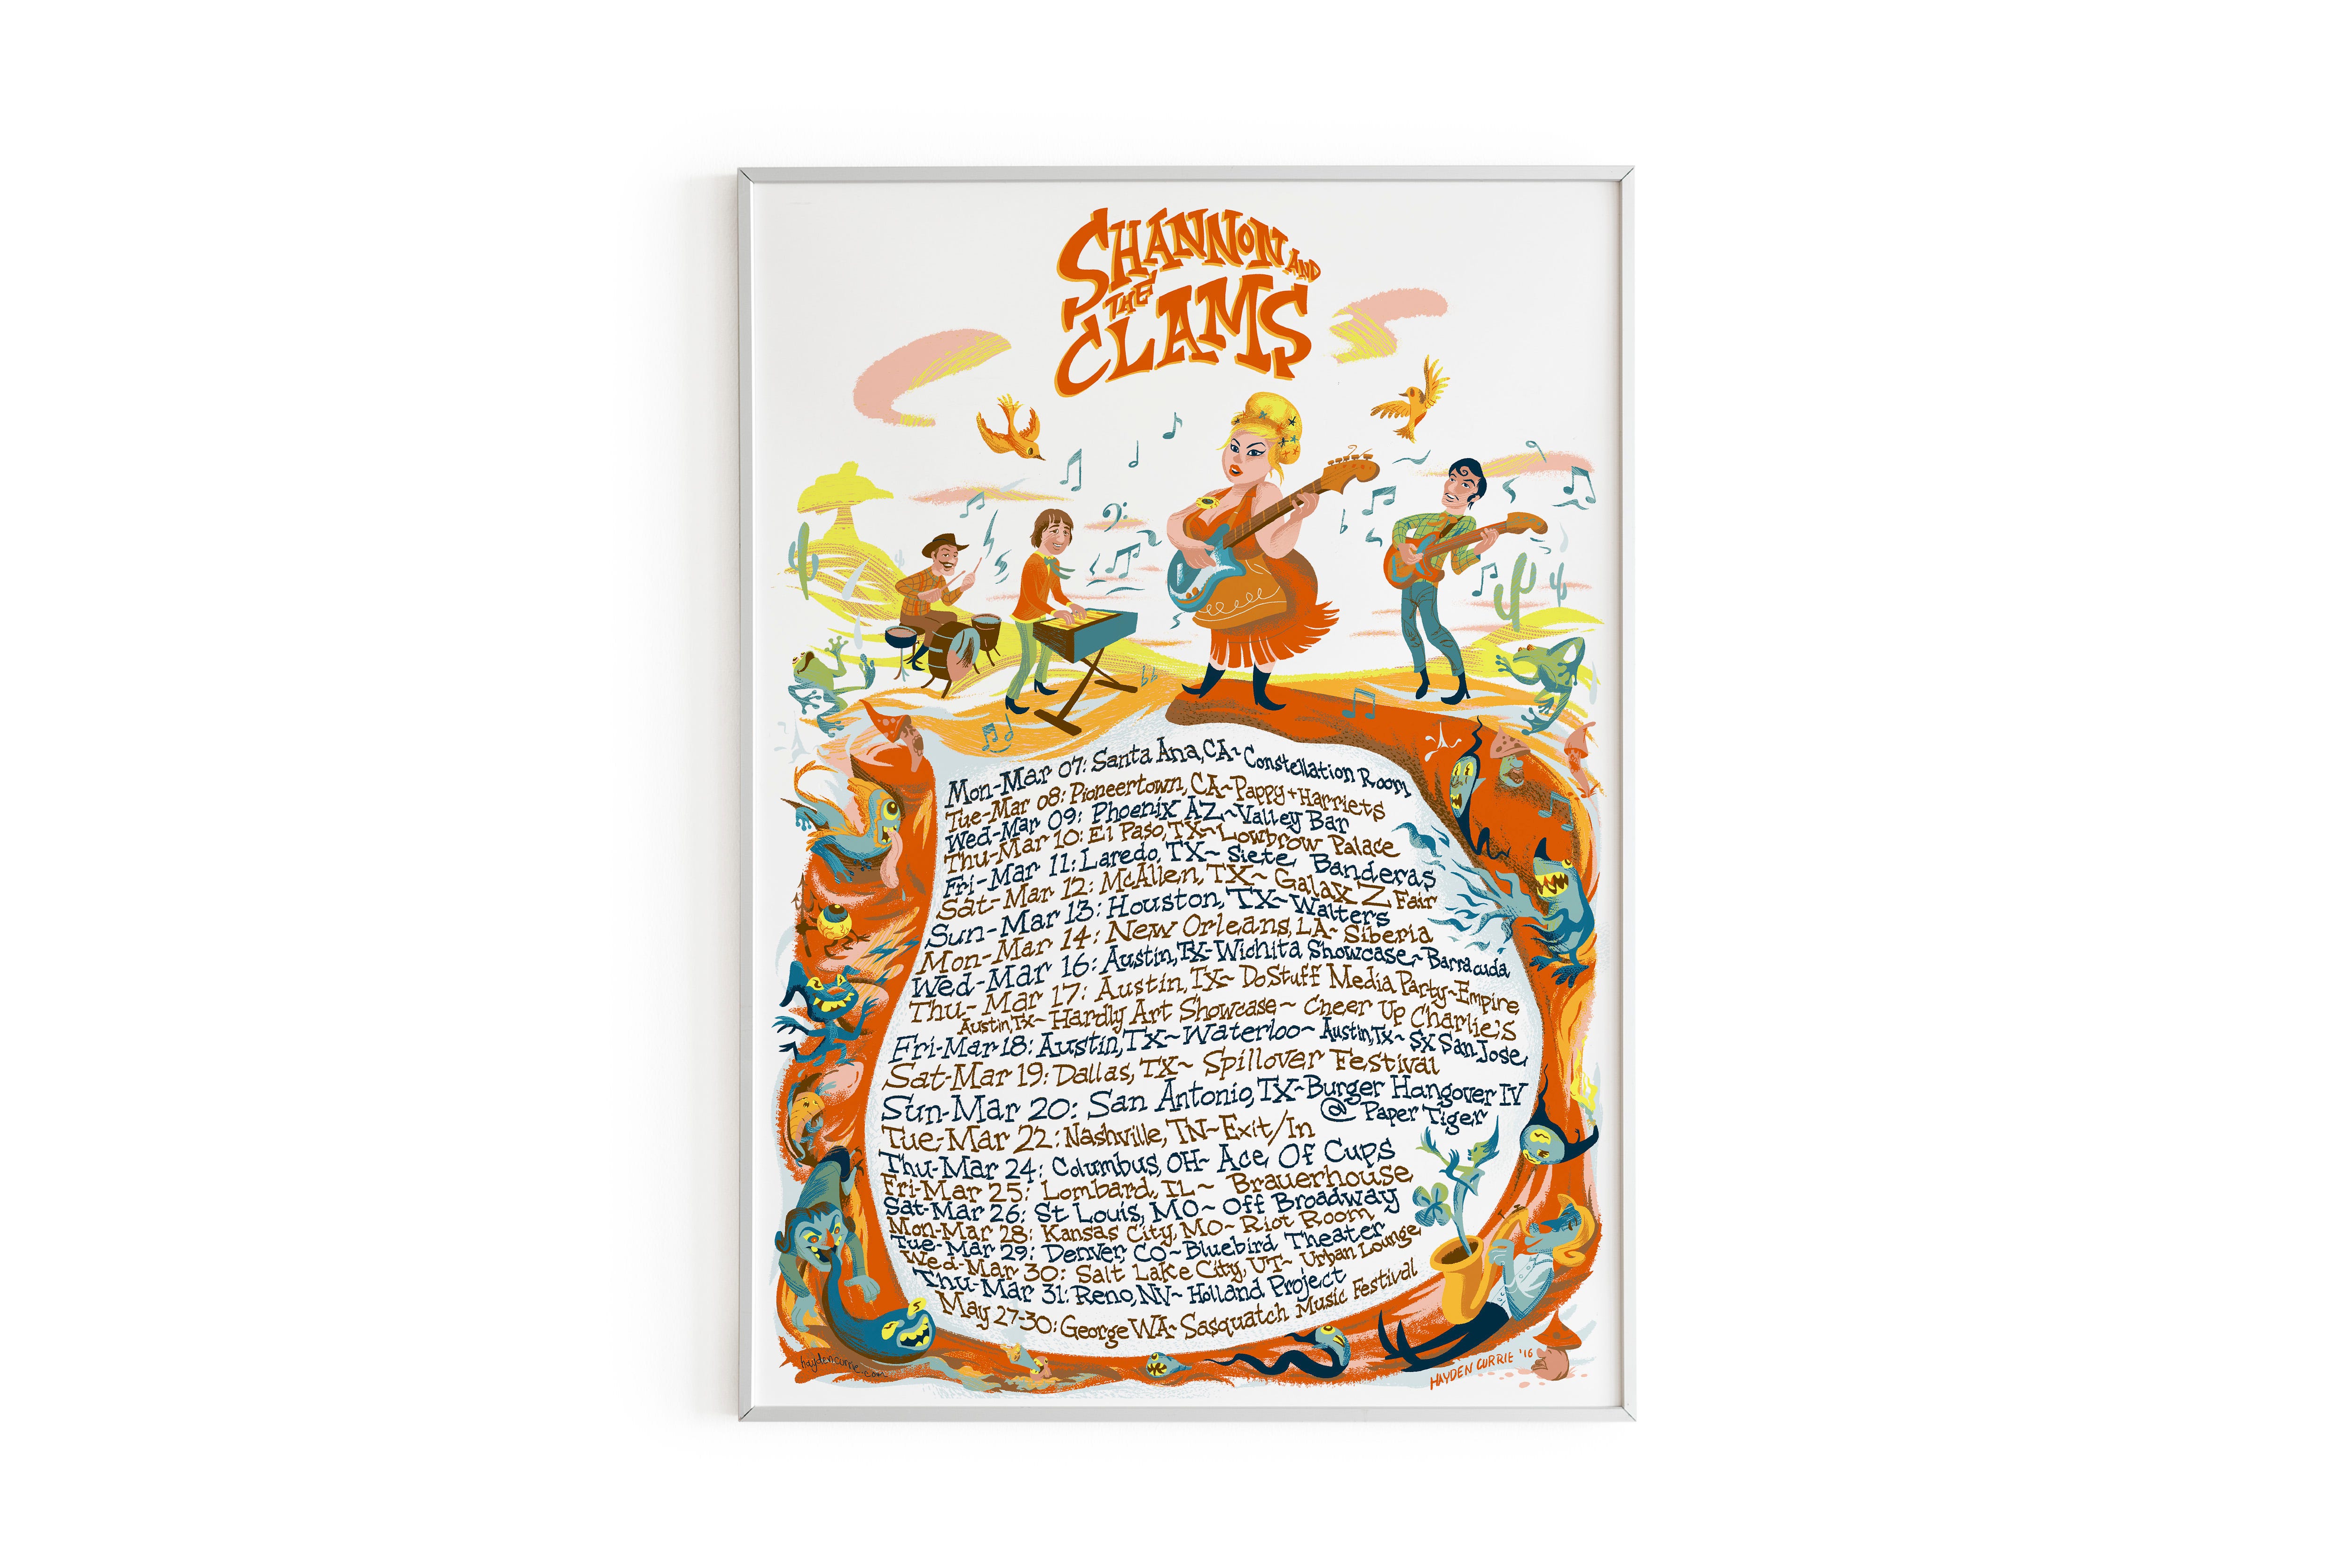 SHANNON AND
THE
CLAMS
Mon-Mar 07: Santa Ana, CA~ Constellation Room
Tue-Mar 08: Pioneertown, CA~ Pappy + Harriets
Wed-Mar 09: Phoenix AZ~ Valley Bar
Thu-Mar 10: El Paso, TX~ Lowbrow Palace
Fri-Mar 11: Laredo, TX~ Siete Banderas
Sat-Mar 12: McAllen, TX~ Galax Z Fair
Sun-Mar 13: Houston, TX~ Walters
Mon-Mar 14: New Orleans, LA~ Siberia
Wed-Mar 16: Austin, TX- Wichita Showcase~ Barracuda
Thu-Mar 17: Austin, TX~ DoStuff Media Party~ Empire
Austin, Tx~ Hardly Art Showcase~ Cheer Up Charlie's
Fri-Mar 18: Austin, TX~ Waterloo~ Austin, Tx~ SX San Jose
Sat-Mar 19: Dallas, TX~ Spillover Festival
Sun-Mar 20: San Antonio, TX~ Burger Hangover IV
@ Paper Tiger
Tue-Mar 22: Nashville, TN~ Exit/In
Thu-Mar 24: Columbus, OH~ Ace Of Cups
Fri-Mar 25: Lombard, IL~ Brauerhouse
Sat-Mar 26: St Louis, MO~ Off Broadway
Mon-Mar 28: Kansas City, MO~ Riot Room
Tue-Mar 29: Denver, CO~ Bluebird Theater
Wed-Mar 30: Salt Lake City, UT~ Urban Lounge
Thu-Mar 31: Reno, NV~ Holland Project
May 27-30: George WA~ Sasquatch Music Festival
haydencurrie.com
HAYDEN CURRIE '16